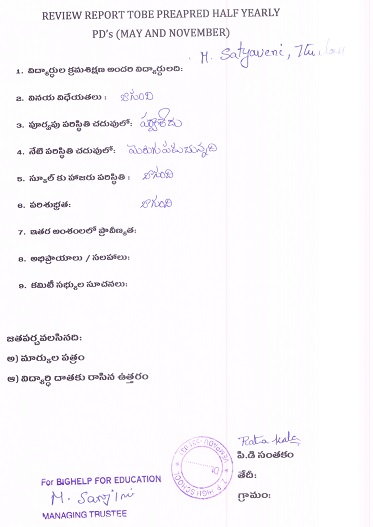 REVIEW REPORT TOBE PREAPRED HALF YEARLY
PD's (MAY AND NOVEMBER)
M. Satyaveni, 7th
1. విద్యార్థుల క్రమశిక్షణ అందరి విద్యార్థులది:
2. వినయ విధేయతలు : బాగుంది
3. పూర్వపు పరిస్థితి చదువులో: పర్వాలేదు
4. నేటి పరిస్థితి చదువులో: మెరుగుపడుచున్నది
5. స్కూల్ కు హాజరు పరిస్థితి : బాగుంది
6. పరిశుభ్రత: బాగుంది
7. ఇతర అంశంలలో ప్రావీణ్యత:
8. అభిప్రాయాలు / సలహాలు:
9. కమిటీ సభ్యుల సూచనలు:
జతపర్చవలసినది:
అ) మార్కుల పత్రం
ఆ) విద్యార్ధి దాతకు రాసిన ఉత్తరం
పి.డి సంతకం
తేది:
గ్రామం:
For BIGHELP FOR EDUCATION
M. Sarojini
MANAGING TRUSTEE
HIGH SCHOOL